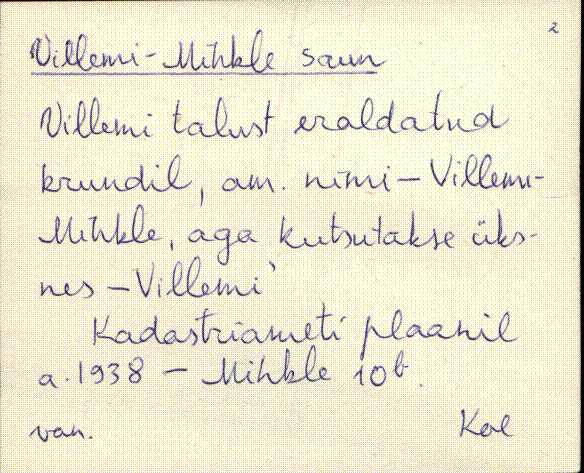 2
Villemi-Mihkle saun
Villemi talust eraldatud
krundil, am. nimi – Villemi-
Mihkle, aga kutsutakse üks-
nes – Villemi'
Kadastriameti plaanil
a. 1938 – Mihkle 10b.
van. Kal